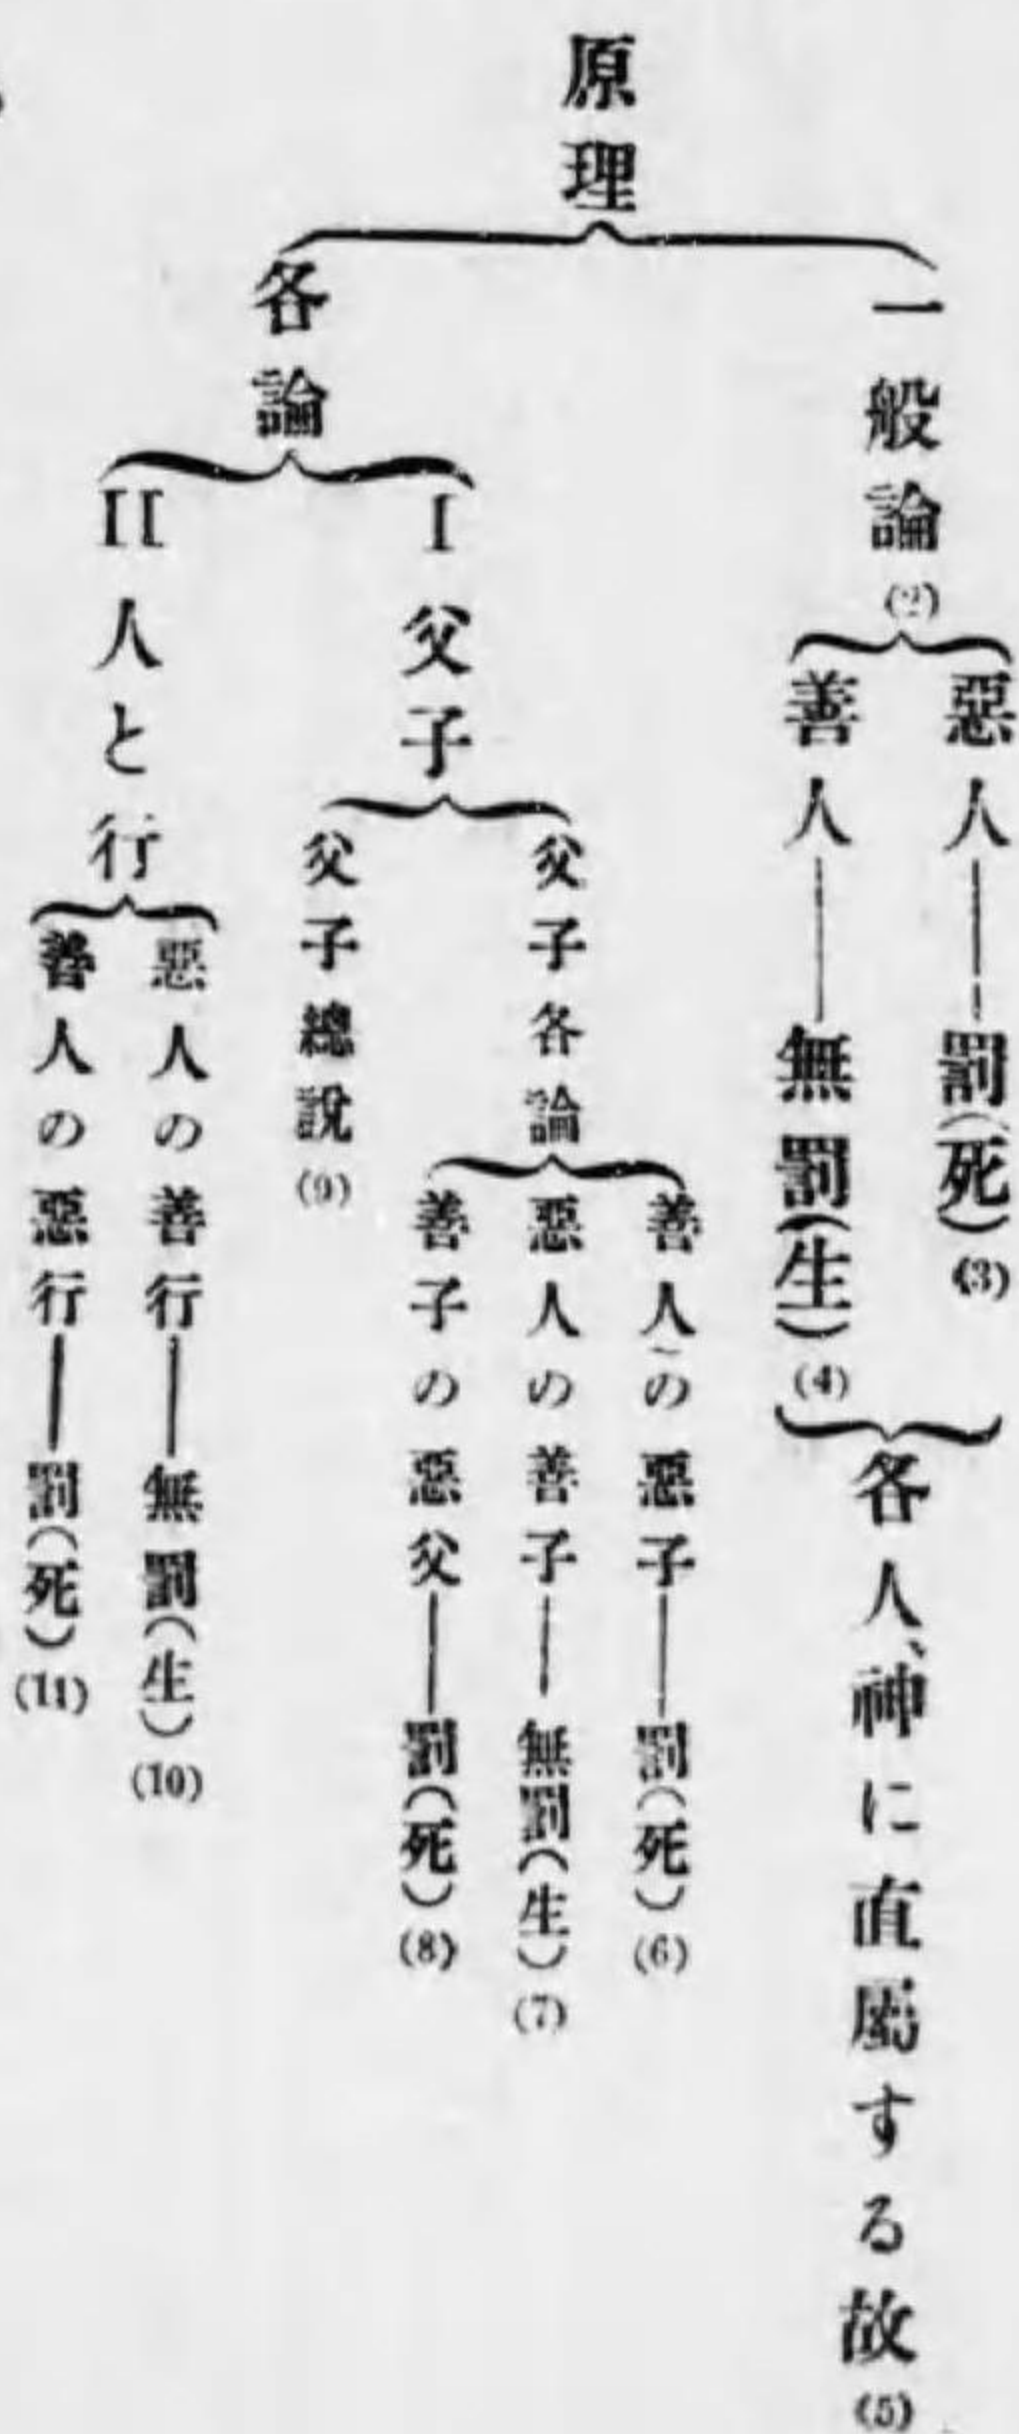 原理
一般論(2)
惡人――罰(死)(3)
善人――無罰(生)(4)
各人、神に直屬する故(5)
各論
I 父子
父子各論
善人の惡子――罰(死)(6)
惡人の善子――無罰(生)(7)
善子の惡父――罰(死)(8)
父子總說(9)
II 人と行
惡人の善行――無罰(生)(10)
善人の惡行――罰(死)(11)